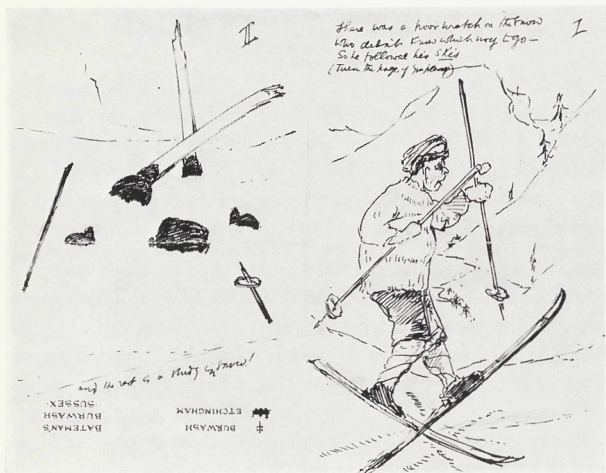 I
There was a poor wretch on the snow
who didn't know which way to go—
So he followed his skis
(Turn the page, if you please)
II
and the rest is a study in snow!
BATEMAN'S
BURWASH
SUSSEX.
BURWASH
ETCHINGHAM